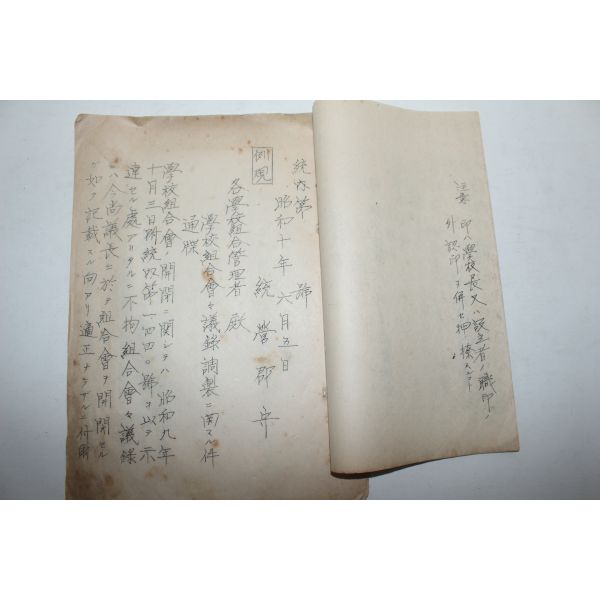 注意 印ハ學校長又ハ設立者ノ職印ノ
外認印ヲ併セ押捺スルコト
統内第 號
昭和十年六月五日
統營郡守
例規
各學校組合管理者殿
學校組合會々議錄調製ニ関スル件
通牒
學校組合會ノ開閉ニ関シテハ昭和九年
十月三日附統奴第一四四〇號ヲ以テ示
達セル處アリタルニ不拘組合會々議錄
ニハ今尚議長ニ於テ組合會ヲ開閉セル
ガ如ク記載スル向アリ適正ナラザルニ付爾